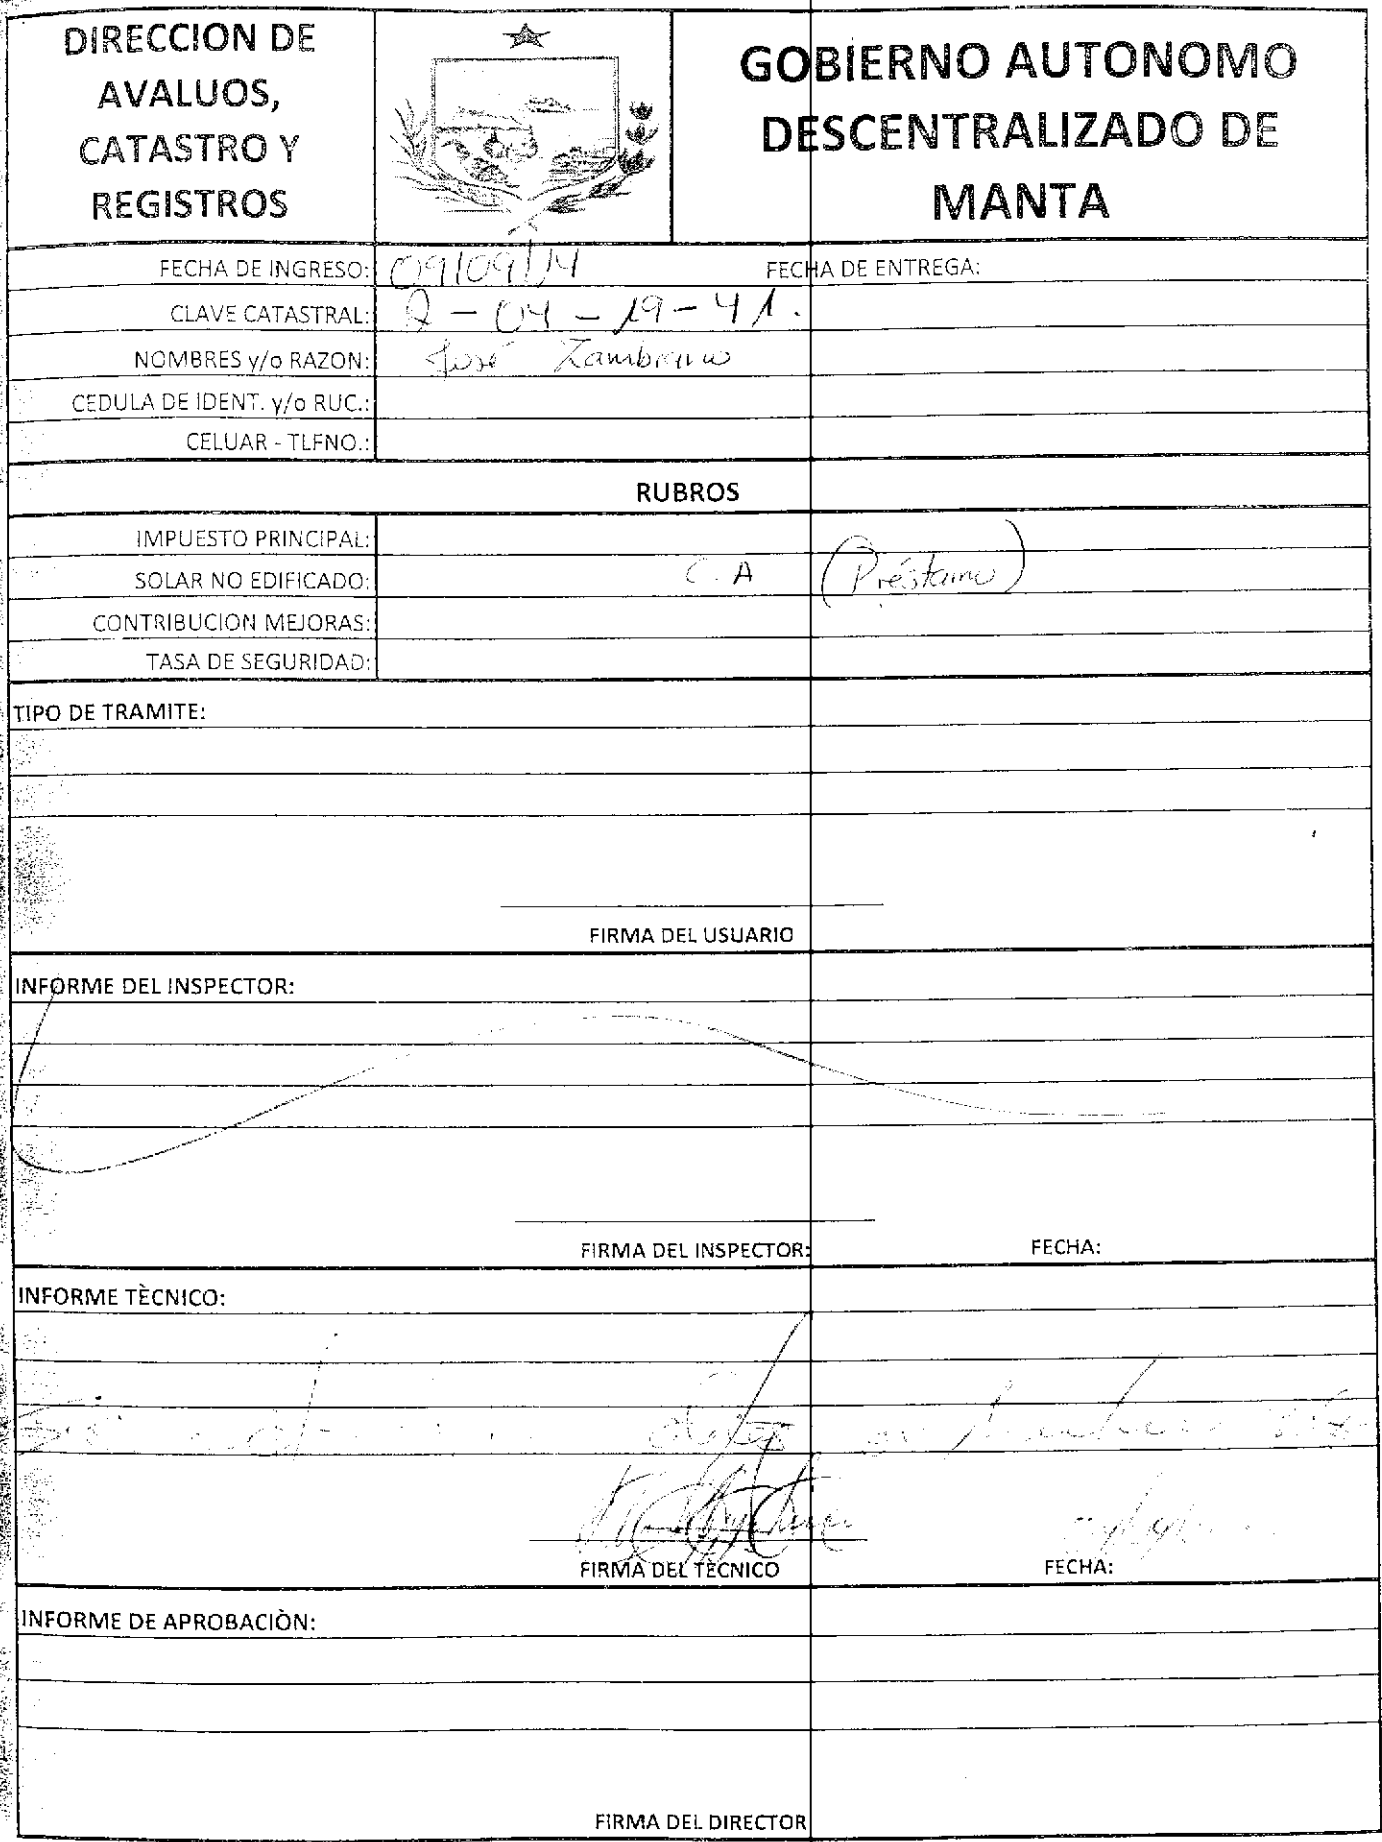 DIRECCION DE
AVALUOS,
CATASTRO Y
REGISTROS
GOBIERNO AUTONOMO
DESCENTRALIZADO DE
MANTA
FECHA DE INGRESO: 09/09/14 FECHA DE ENTREGA:
CLAVE CATASTRAL: 2-04-19-41.
NOMBRES y/o RAZON: José Zambrano
CEDULA DE IDENT. y/o RUC.:
CELUAR - TLFNO.:
RUBROS
IMPUESTO PRINCIPAL:
SOLAR NO EDIFICADO: C.A (Préstamo)
CONTRIBUCION MEJORAS:
TASA DE SEGURIDAD:
TIPO DE TRAMITE:
FIRMA DEL USUARIO
INFORME DEL INSPECTOR:
FIRMA DEL INSPECTOR: FECHA:
INFORME TÈCNICO:
FIRMA DEL TECNICO FECHA:
INFORME DE APROBACIÒN:
FIRMA DEL DIRECTOR